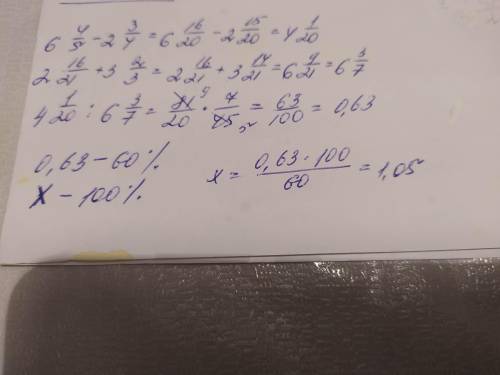 6 4/5 - 2 3/4 = 6 16/20 - 2 15/20 = 4 1/20
2 16/21 + 3 2/3 = 2 16/21 + 3 14/21 = 6 9/21 = 6 3/7
4 1/20 : 6 3/7 = 81/20 · 7/45 = 63/100 = 0,63
0,63 - 60%
x - 100%
x = 0,63 · 100 / 60 = 1,05